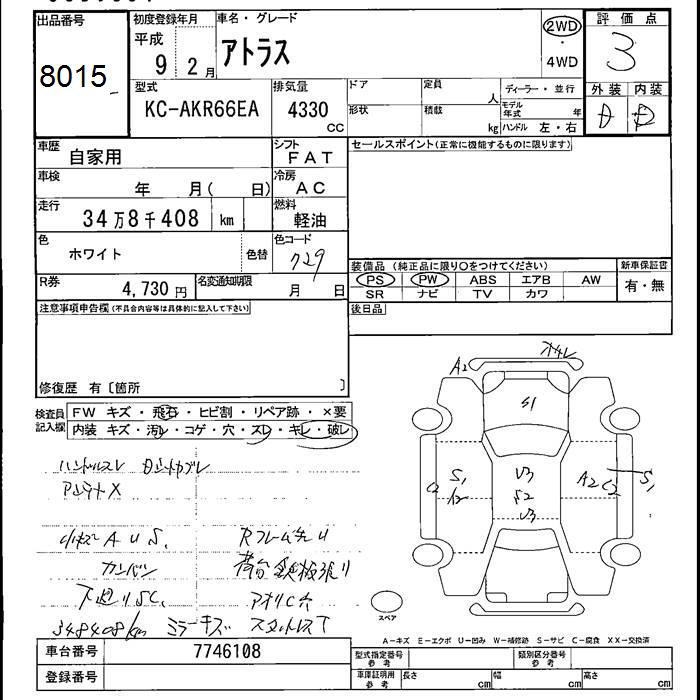 出品番号
8015
初度登録年月
平成
9 2 月
車名・グレード
アトラス
2WD
・
4WD
評価点
3
型式
KC-AKR66EA
排気量
4330
cc
ドア
形状
定員
人
積載
kg
ディーラー・並行
モデル年式
年
ハンドル 左・右
外装 内装
D D
車歴
自家用
シフト
FAT
セールスポイント(正常に機能するものに限ります)
車検
年 月( 日)
冷房
AC
走行
34万8千408 km
燃料
軽油
色
ホワイト
色替
色コード
729
装備品 (純正品に限り○をつけてください)
新車保証書
PS PW ABS エアB AW
SR ナビ TV カワ
有・無
R券
4,730 円
名変通知期限
月 日
後日品
注意事項申告欄(不具合内容等は具体的に記入して下さい)
修復歴 有〔箇所 〕
検査員
記入欄
FW キズ・飛石・ヒビ割・リペア跡・×要
内装 キズ・汚レ・コゲ・穴・スレ・キレ・破レ
ハンドルスレ
アンテナX
小キズ A U S.
Rフレーム先U
カンバン
荷台鉄板張り
下廻りSC.
アオリC穴
348408km ミラーキズ スタットレスT
A2
S1
V3
S2
V3
C2
S1
A2
A2
C2
S1
スペア
A-キズ E-エクボ U-凹み W-補修跡 S-サビ C-腐食 XX-交換済
車台番号
7746108
登録番号
型式指定番号
参考
類別区分番号
参考
車庫証明用
参考
長さ
cm
幅
cm
高さ
cm